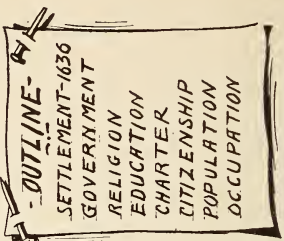 -OUTLINE-
SETTLEMENT-1636
GOVERNMENT
RELIGION
EDUCATION
CHARTER
CITIZENSHIP
POPULATION
OCCUPATION